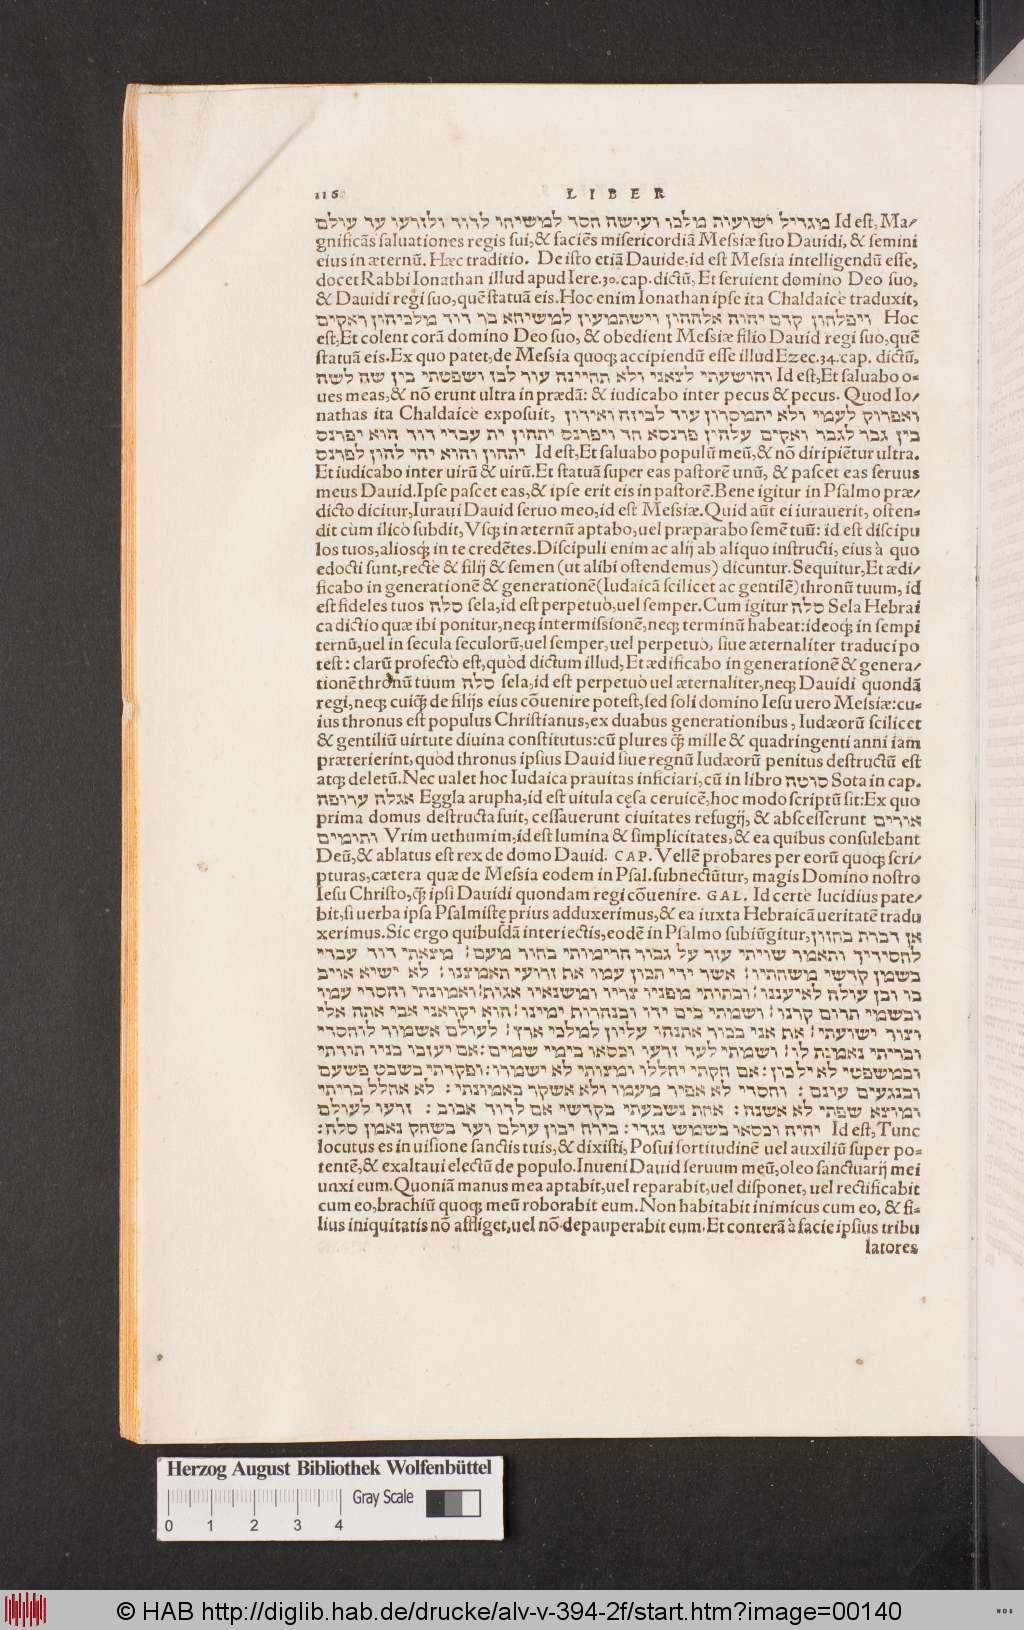 116 LIBER
מגדיל ישועות מלכו ועושה חסד למשיחו לדוד ולזרעו עד עולם Id est, Ma/
gnificãs saluationes regis sui,& faciẽs misericordiã Messiæ suo Dauidi, & semini
eius in æternũ. Hæc traditio. De isto etiã Dauide, id est Messia intelligendũ esse,
docet Rabbi Ionathan illud apud Iere.30.cap.dictũ, Et seruient domino Deo suo,
& Dauidi regi suo,quẽ statuã eis.Hoc enim Ionathan ipse ita Chaldaice traduxit,
ויפלחון קדם יהוה אלההון וישתמעון למשיחא בר דוד מלכיהון דאקים Hoc
est,Et colent corã domino Deo suo, & obedient Messiæ filio Dauid regi suo,quẽ
statuã eis.Ex quo patet,de Messia quoq; accipiendũ esse illud Ezec.34.cap. dictũ,
והושעתי לצאני ולא תהיינה עוד לבז ושפטתי בין שה לשה Id est,Et saluabo o=
ues meas,& nõ erunt ultra in prædã: & iudicabo inter pecus & pecus. Quod Io/
nathas ita Chaldaice exposuit, ואפרוק לעמיי ולא יתמסרון עוד לביזה ואידון
בין גבר לגבר ואקים עלהון פרנסא חד ויפרנס יתהון ית עבדי דוד הוא יפרנס
יתהון והוא יהי להון לפרנס Id est,Et saluabo populũ meũ,& nõ diripiẽtur ultra.
Et iudicabo inter uirũ & uirũ.Et statuã super eas pastorẽ unũ, & pascet eas seruus
meus Dauid.Ipse pascet eas,& ipse erit eis in pastorẽ.Bene igitur in Psalmo præ/
dicto dicitur,Iuraui Dauid seruo meo,id est Messiæ.Quid aũt ei iurauerit, osten=
dit cùm ilico subdit, Vsq; in æternũ aptabo,uel præparabo semẽ tuũ: id est discipu
los tuos,aliosq́; in te credẽtes.Discipuli enim ac alij ab aliquo instructi, eius à quo
edocti sunt,rectè & filij & semen (ut alibi ostendemus) dicuntur.Sequitur,Et ædi/
ficabo in generationẽ & generationẽ(Iudaicã scilicet ac gentilẽ)thronũ tuum, id
est fideles tuos סלה sela,id est perpetuò,uel semper.Cum igitur סלה Sela Hebrai
ca dictio quæ ibi ponitur,neq; intermissionẽ,neq; terminũ habeat:ideoq́; in sempi
ternũ,uel in secula seculorũ,uel semper,uel perpetuò, siue æternaliter traduci po
test: clarũ profectò est,quòd dictum illud,Et ædificabo in generationẽ & genera/
tionẽ thronũ tuum סלה sela,id est perpetuò uel æternaliter,neq; Dauidi quondã
regi,neq; cuiq̃; de filijs eius cõuenire potest,sed soli domino Iesu uero Messiæ:cu=
ius thronus est populus Christianus,ex duabus generationibus, Iudæorũ scilicet
& gentiliũ uirtute diuina constitutus:cũ plures q̃; mille & quadringenti anni iam
præterierint,quòd thronus ipsius Dauid siue regnũ Iudæorũ penitus destructũ est
atq; deletũ.Nec ualet hoc Iudaica prauitas inficiari,cũ in libro סוטה Sota in cap.
אגלה ערופה Eggla arupha,id est uitula cęsa ceruicẽ,hoc modo scriptũ sit:Ex quo
prima domus destructa fuit, cessauerunt ciuitates refugij, & abscesserunt אורים
ותומים Vrim uethumim,id est lumina & simplicitates,& ea quibus consulebant
Deũ,& ablatus est rex de domo Dauid. CAP. Vellẽ probares per eorũ quoq; scri/
pturas,cætera quæ de Messia eodem in Psal.subnectũtur, magis Domino nostro
Iesu Christo,q̃; ipsi Dauidi quondam regi cõuenire. GAL. Id certe lucidius pate/
bit,si uerba ipsa Psalmistę prius adduxerimus,& ea iuxta Hebraicã ueritatẽ tradu
xerimus.Sic ergo quibusdã interiectis,eodẽ in Psalmo subiũgitur, אז דברת בחזון
לחסידיך ותאמר שויתי עזר על גבור הרימותי בחור מעם: מצאתי דוד עבדי
בשמן קדשי משחתיו: אשר ידי תכון עמו אף זרועי תאמצנו: לא ישיא אויב
בו ובן עולה לא יעננו: וכתותי מפניו צריו ומשנאיו אגוף: ואמונתי וחסדי עמו
ובשמי תרום קרנו: ושמתי בים ידו ובנהרות ימינו: הוא יקראני אבי אתה אלי
וצור ישועתי: אף אני בכור אתנהו עליון למלכי ארץ: לעולם אשמור לו חסדי
ובריתי נאמנת לו: ושמתי לעד זרעו וכסאו כימי שמים: אם יעזבו בניו תורתי
ובמשפטי לא ילכון: אם חקתי יחללו ומצותי לא ישמרו: ופקדתי בשבט פשעם
ובנגעים עונם: וחסדי לא אפיר מעמו ולא אשקר באמונתי: לא אחלל בריתי
ומוצא שפתי לא אשנה: אחת נשבעתי בקדשי אם לדוד אכזב: זרעו לעולם
יהיה וכסאו כשמש נגדי: כירח יכון עולם ועד בשחק נאמן סלה: Id est,Tunc
locutus es in uisione sanctis tuis,& dixisti,Posui fortitudinẽ uel auxiliũ super po=
tentẽ,& exaltaui electũ de populo.Inueni Dauid seruum meũ,oleo sanctuarij mei
unxi eum.Quoniã manus mea aptabit,uel reparabit,uel disponet, uel rectificabit
cum eo,brachiũ quoq; meũ roborabit eum.Non habitabit inimicus cum eo, & fi=
lius iniquitatis nõ affliget,uel nõ depauperabit eum.Et conterã à facie ipsius tribu
latores
Herzog August Bibliothek Wolfenbüttel
Gray Scale
0 1 2 3 4
© HAB http://diglib.hab.de/drucke/alv-v-394-2f/start.htm?image=00140